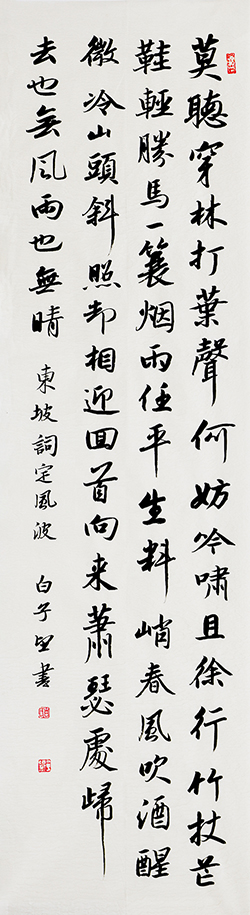 莫聽穿林打葉聲何妨吟嘯且徐行竹杖芒
鞋輕勝馬一蓑烟雨任平生料峭春風吹酒醒
微冷山頭斜照却相迎回首向来蕭瑟處歸
去也無風雨也無晴 東坡詞定風波 白子書